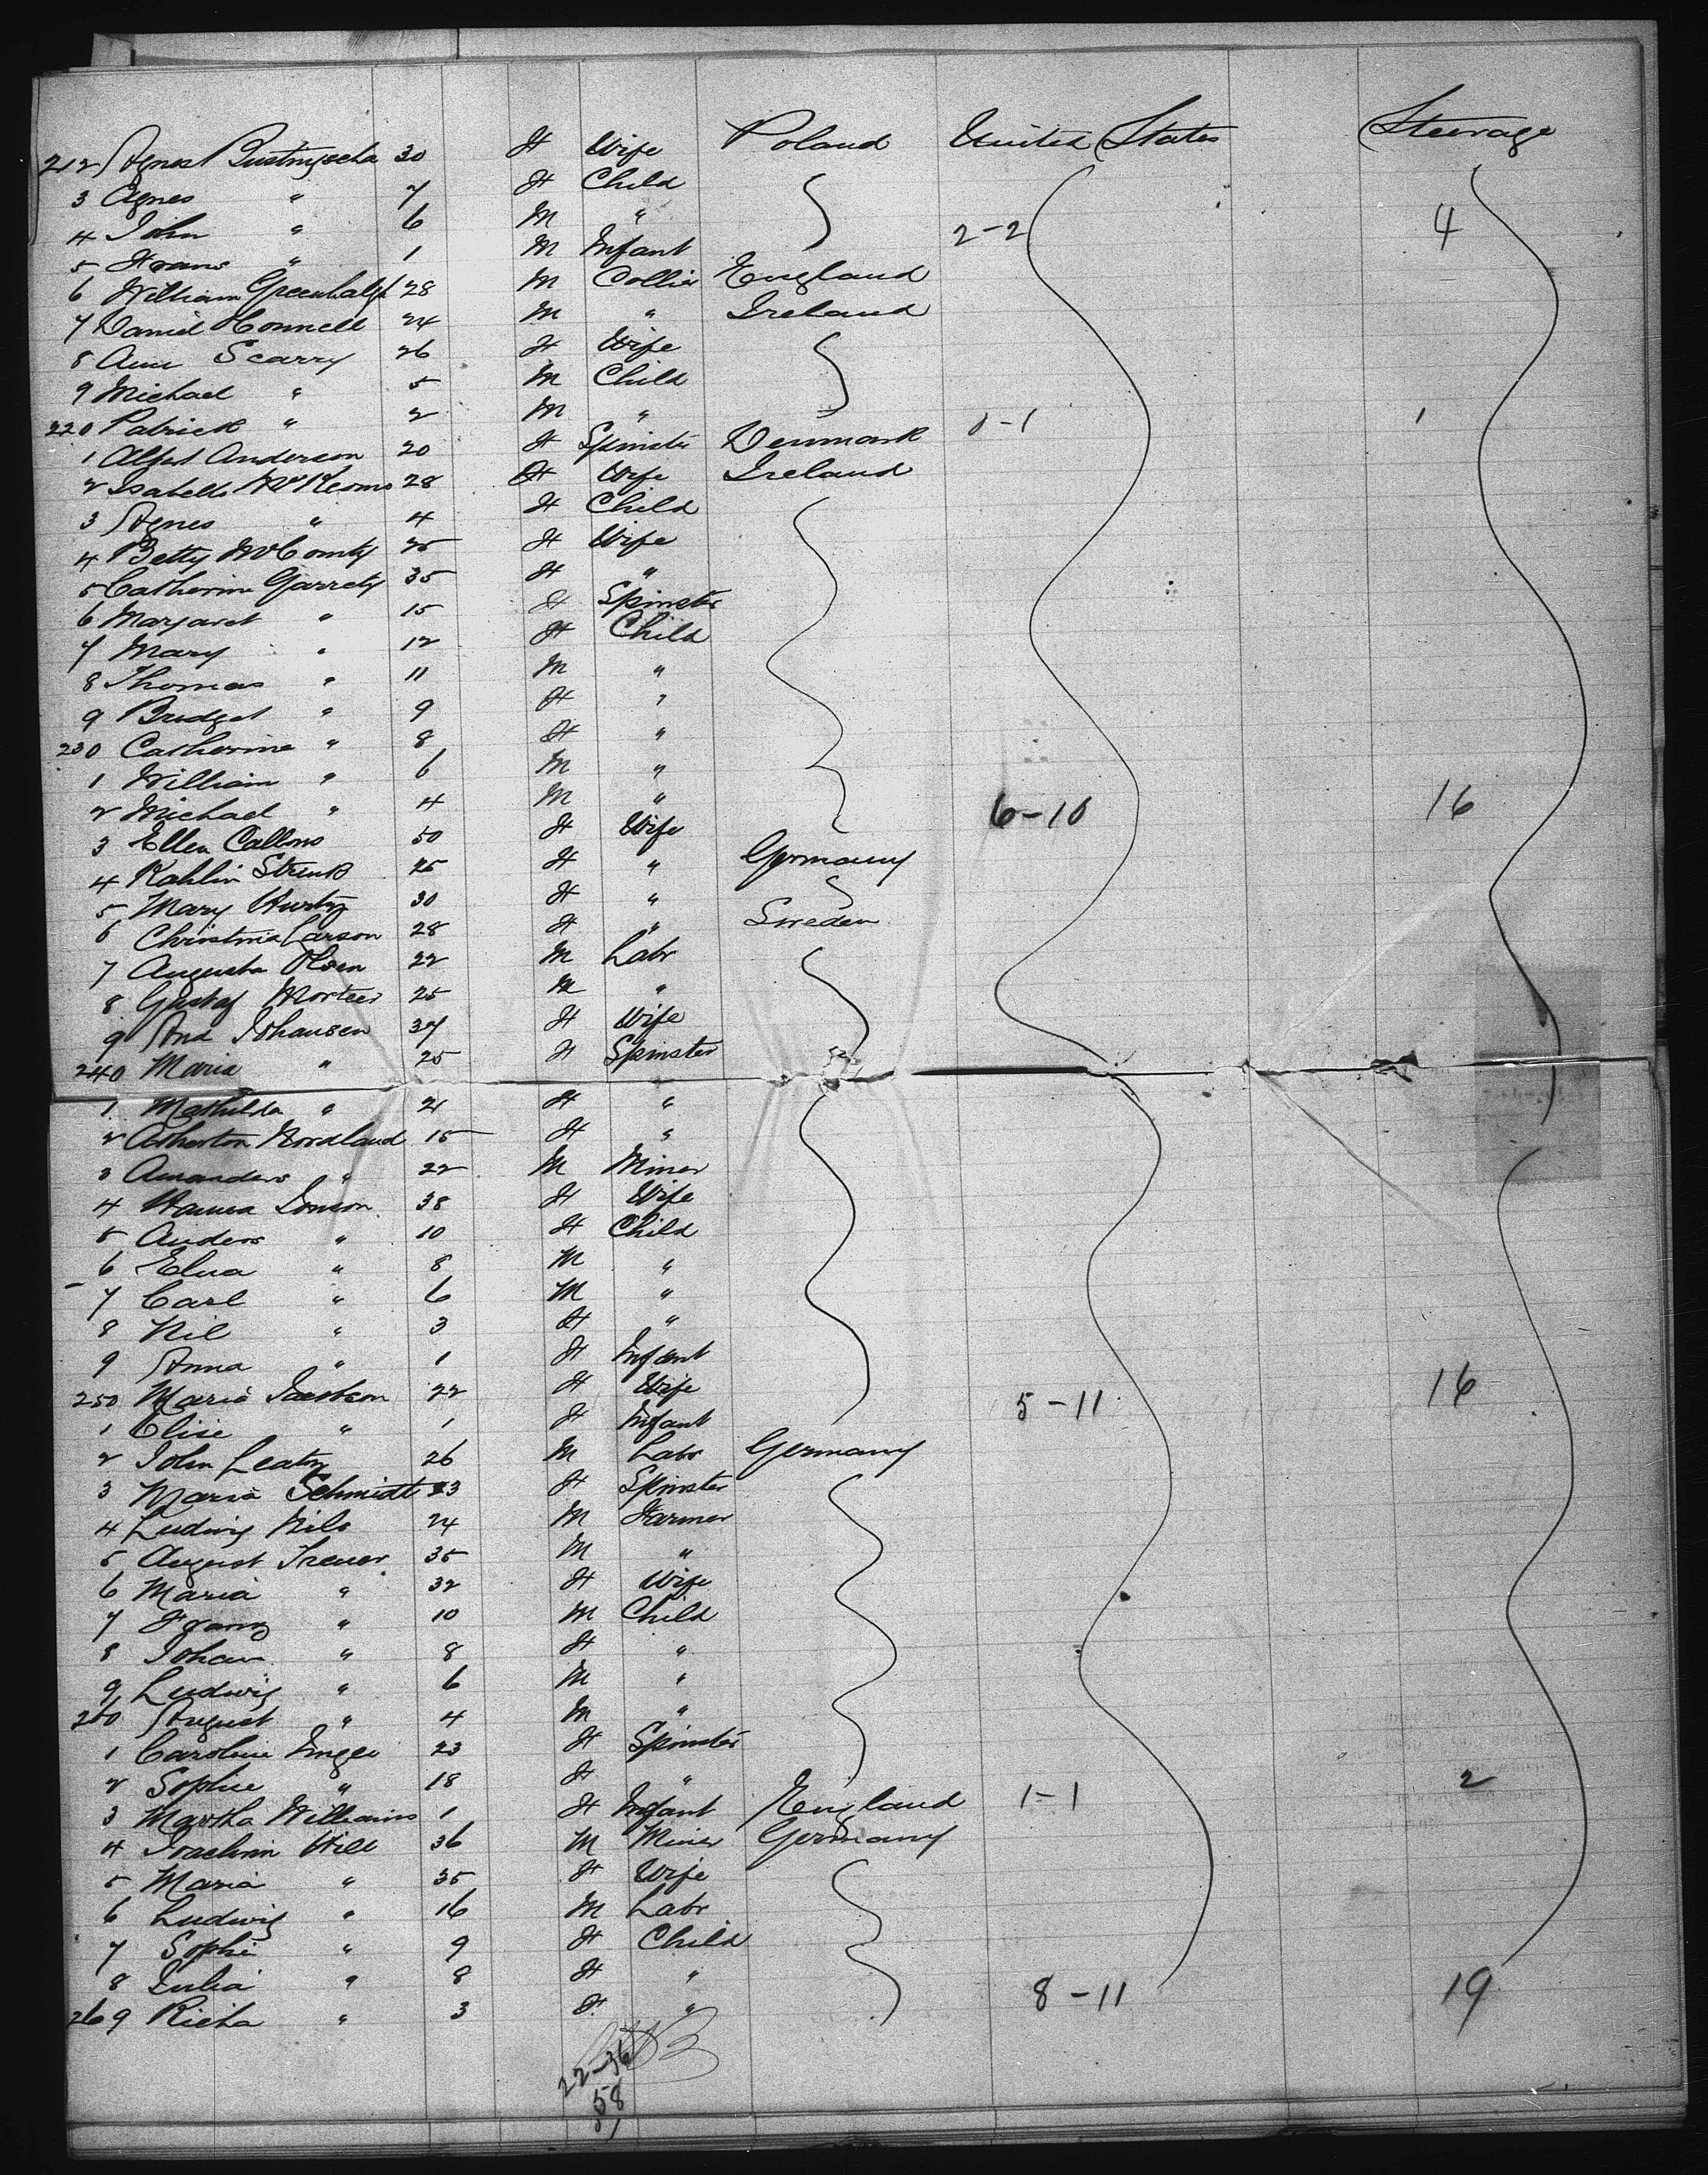 212 Agnes 30 F Wife Poland United States Steerage
3 Agnes " 7 F Child
4 John " 6 M " 2-2 4
5 Frans " 1 M Infant
6 William Greenhalgh 28 M Collier England
7 Daniel Connell 24 M " Ireland
8 Ann Scarry 26 F Wife
9 Michael " 5 M Child
220 Patrick " 2 M " 0-1 1
1 Anderson 20 F Spinster Denmark
2 Isabella 28 F Wife Ireland
3 Agnes " 4 F Child
4 Betty 25 F Wife
5 Catherine Garrety 35 F "
6 Margaret " 15 F Spinster
7 Mary " 12 F Child
8 Thomas " 11 M "
9 Bridget " 9 F "
230 Catherine " 8 F "
1 William " 6 M "
2 Michael " 4 M " 6-10 16
3 Ellen Callons 50 F Wife
4 25 F " Germany
5 Mary 30 F "
6 Christina Larson 28 F " Sweden
7 Augusta Olsen 22 M Labr
8 Gustaf 25 M "
9 Ana Johansen 37 F Wife
240 Maria " 25 F Spinster
1 Mathilda " 21 F "
2 Nordland 15 F "
3 " 22 M Miner
4 Hanna Jonson 38 F Wife
5 Anders " 10 F Child
6 Elna " 8 M "
7 Carl " 6 M "
8 Nil " 3 F "
9 Anna " 1 F Infant
250 Maria 22 F Wife 5-11 16
1 Elise " 1 F Infant
2 John 26 M Labr Germany
3 Maria Schmidt 23 F Spinster
4 Ludwig Nils 24 M Farmer
5 August 35 M "
6 Maria " 32 F Wife
7 Franz " 10 M Child
8 Johan " 8 F "
9 Ludwig " 6 M "
260 August " 4 M "
1 Caroline 23 F Spinster
2 Sophie " 18 F " 2
3 Martha Williams 1 F Infant England 1-1
4 Joachim Hill 36 M Miner Germany
5 Maria " 35 F Wife
6 Ludwig " 16 M Labr
7 Sophi " 9 F Child
8 Julia " 8 F "
269 Richa " 3 F " 8-11 19
22-36
58